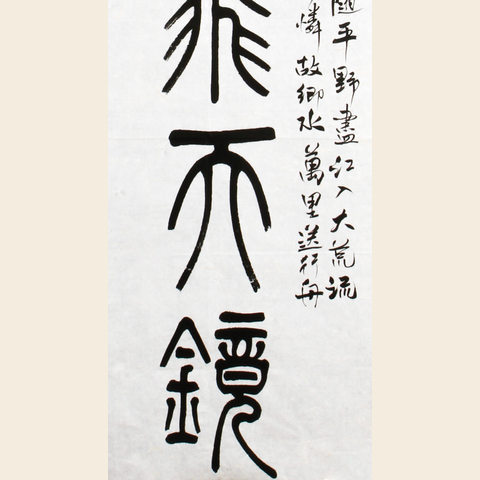 隨平野盡江入大荒流
憐故鄉水萬里送行舟
飛天鏡